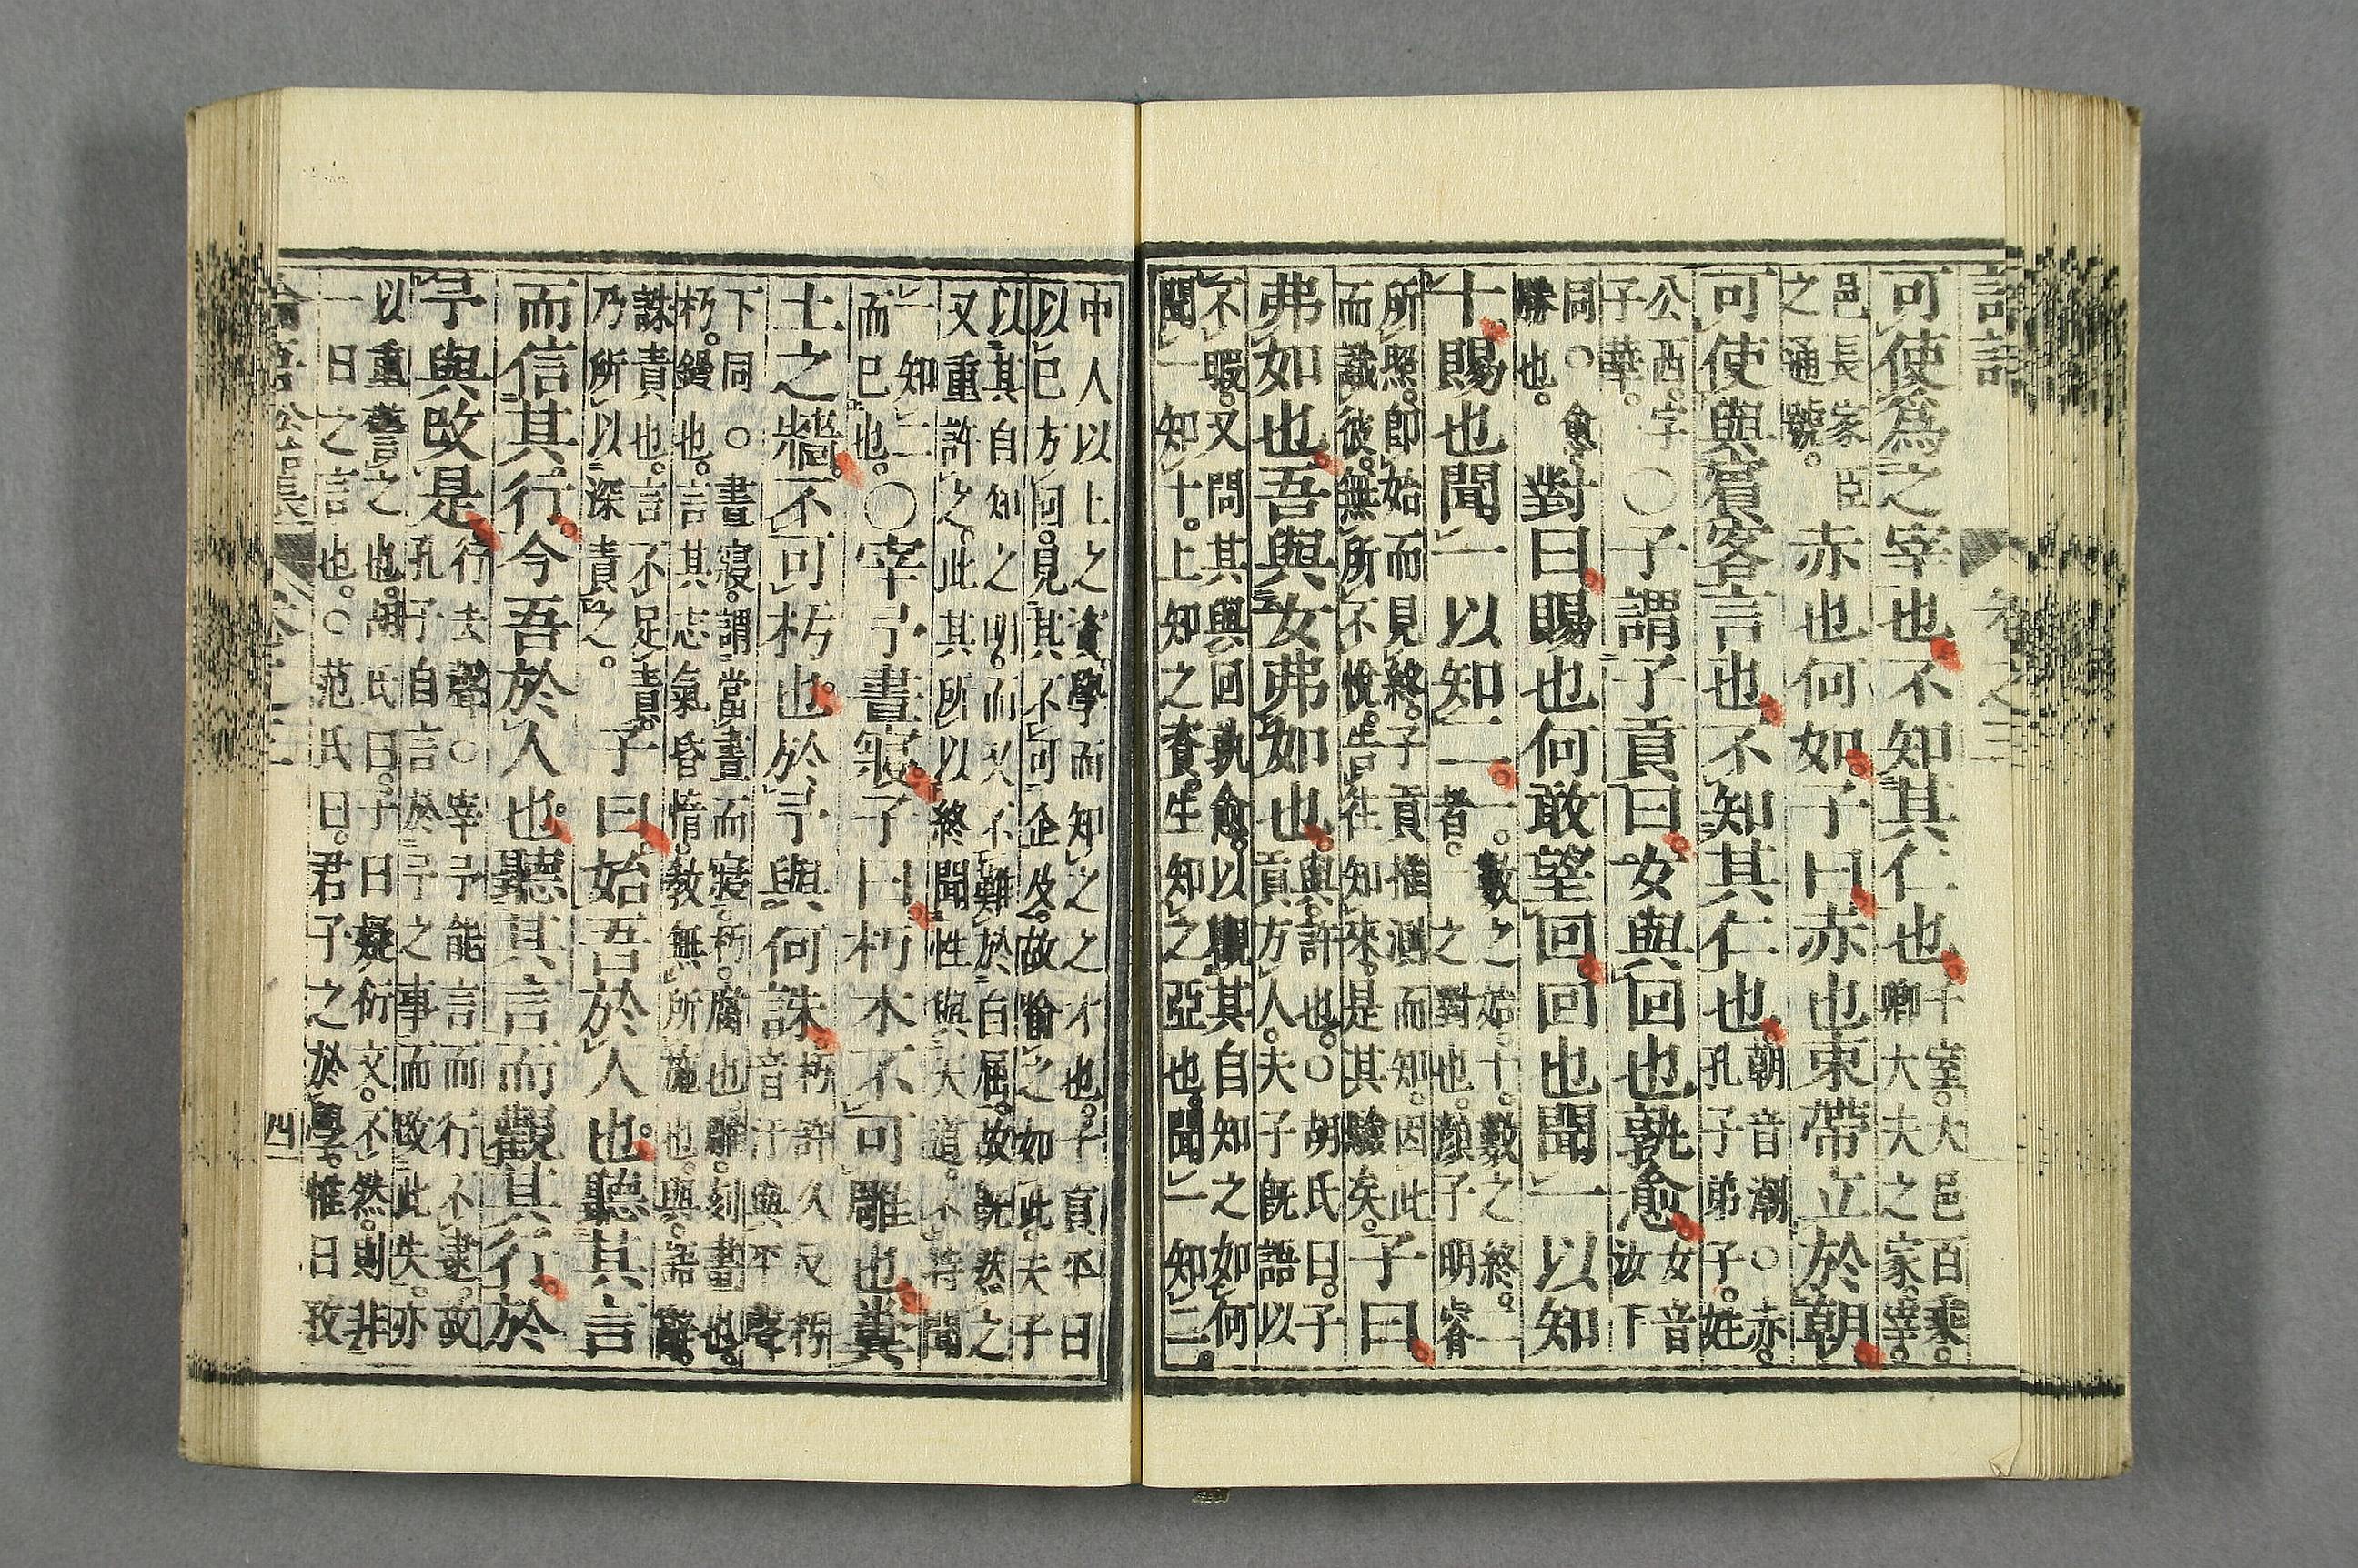 卷之三
可使爲之宰也。不知其仁也。千室。大邑百乘。
卿大夫之家。宰。
邑長家臣
之通號。
赤也何如。子曰。赤也束帶立於朝。
可使與賓客言也。不知其仁也。朝音潮○赤。
孔子弟子。姓
公西。字
子華。
○子謂子貢曰。女與回也孰愈。女音
汝下
同○愈。
勝也。
對曰。賜也何敢望回。回也聞一以知
十。賜也聞一以知二。一。數之始。十。數之終。二
者。一之對也。顏子明睿
所照。卽始而見終。子貢推測而知。因此
而識彼。無所不悅。告往知來。是其驗矣。
子曰。
弗如也。吾與女弗如也。與。許也。○胡氏曰。子
貢方人。夫子旣語以
不暇。又問其與回孰愈。以觀其自知之如何
聞一知十。上知之資。生知之亞也。聞一知二。
中人以上之資。學而知之之才也。子貢平日
以己方回。見其不可企及。故喻之如此。夫子
以其自知之明。而又不難於自屈。故旣然之
又重許之。此其所以終聞性與天道。不特聞
一知二
而已也。
○宰予晝寢。子曰。朽木不可雕也。糞
土之牆。不可杇也。於予與何誅。朽許久反杇
音汙與平聲
下同○晝寢。謂當晝而寐。朽。腐也。雕。刻畫也。
杇。鏝也。言其志氣昏惰。教無所施也。與。語辭。
誅。責也。言不足責。
乃所以深責之。
子曰。始吾於人也。聽其言
而信其行。今吾於人也。聽其言而觀其行。於
予與改是。行去聲○宰予能言而行不逮。故
孔子自言於予之事而改此失。亦
以重警之也。胡氏曰。子曰疑衍文。不然。則非
一日之言也。○范氏曰。君子之於學。惟日孜
論語 公冶長 卷之三 四